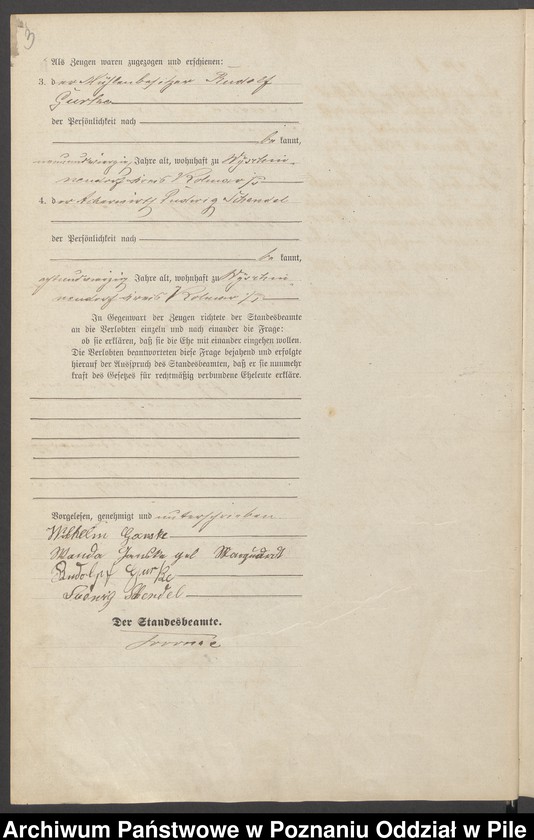 3
Als Zeugen waren zugezogen und erschienen:
3. der Mühlenbesitzer Rudolf
Gurke
der Persönlichkeit nach
be kannt,
neunundvierzig Jahre alt, wohnhaft zu
Kreis Kolmar i/P.
4. der Ackerwirth Ludwig Schendel
der Persönlichkeit nach
be kannt,
achtundvierzig Jahre alt, wohnhaft zu
Kreis Kolmar i/P.
In Gegenwart der Zeugen richtete der Standesbeamte
an die Verlobten einzeln und nach einander die Frage:
ob sie erklären, daß sie die Ehe mit einander eingehen wollen.
Die Verlobten beantworteten diese Frage bejahend und erfolgte
hierauf der Ausspruch des Standesbeamten, daß er sie nunmehr
kraft des Gesetzes für rechtmäßig verbundene Eheleute erkläre.
Vorgelesen, genehmigt und unterschrieben
Wilhelm Ganske
Wanda Ganske geb Marquardt
Rudolf Gurke
Ludwig Schendel
Der Standesbeamte.
Archiwum Państwowe w Poznaniu Oddział w Pile